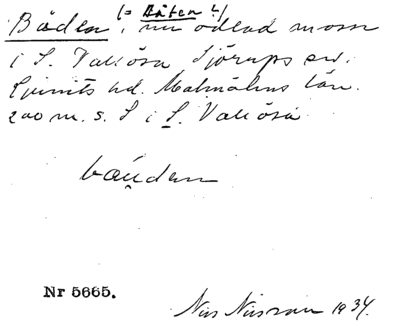 (= Båten?)
Båden, nu odlad mosse
i S. Vallösa Sjörups sn.
Ljunits hd. Malmöhus län.
200 m. s. S i S. Vallösa
båuden
Nr 5665.
Nils Nilsson 1934.